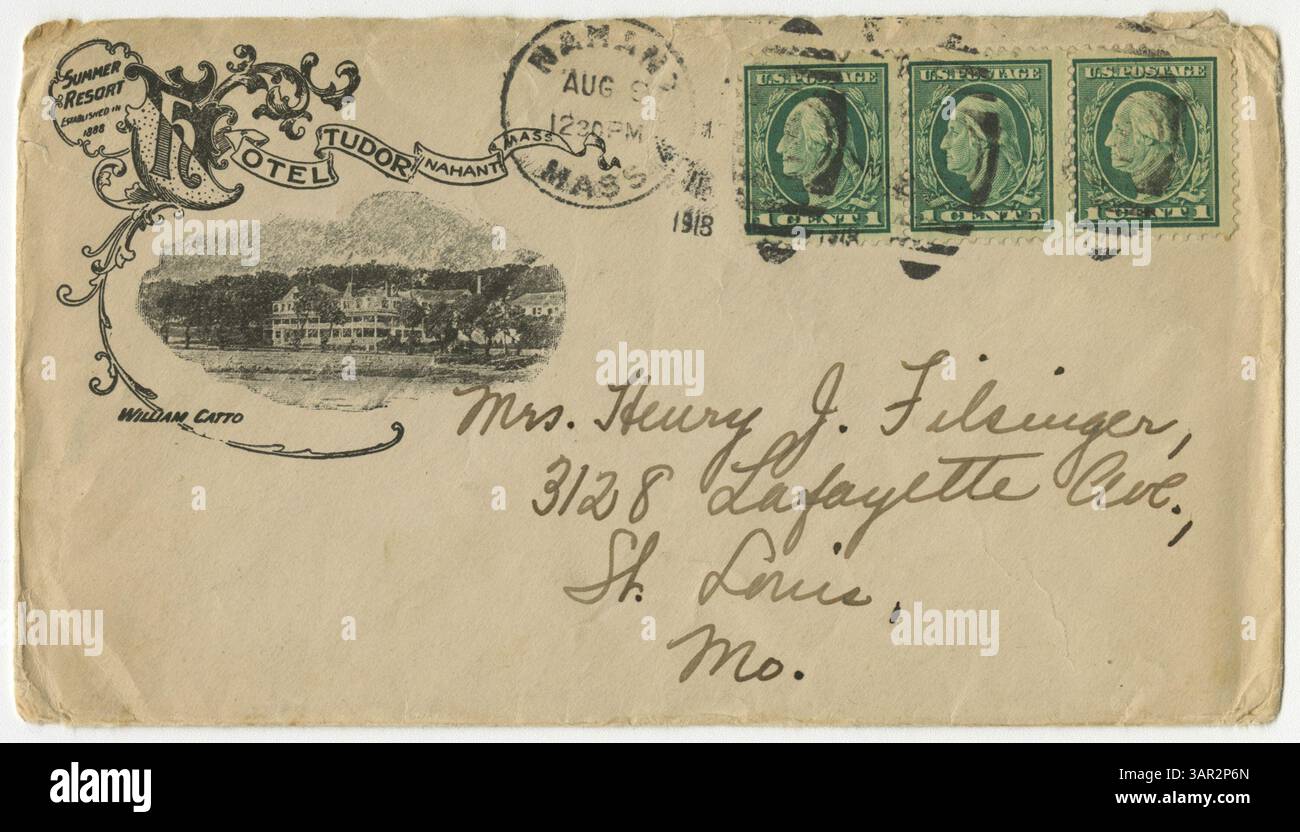 SUMMER
RESORT
ESTABLISHED IN
1888
HOTEL TUDOR NAHANT MASS
WILLIAM CATTO
NAHANT
AUG
12 30 PM
MASS.
1918
1918
U.S. POSTAGE
1 CENT 1
U.S. POSTAGE
1 CENT 1
U.S. POSTAGE
1 CENT 1
Mrs. Henry J. Filsinger,
3128 Lafayette Ave.,
St. Louis,
Mo.
alamy
Image ID: 3AR2P6N
www.alamy.com